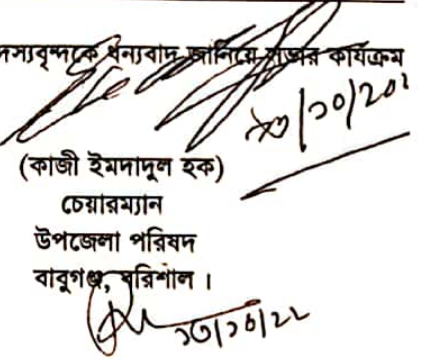 দস্যবৃন্দকে ধন্যবাদ জানিয়ে সভার কার্যক্রম
(কাজী ইমদাদুল হক)
চেয়ারম্যান
উপজেলা পরিষদ
বাবুগঞ্জ, বরিশাল ।